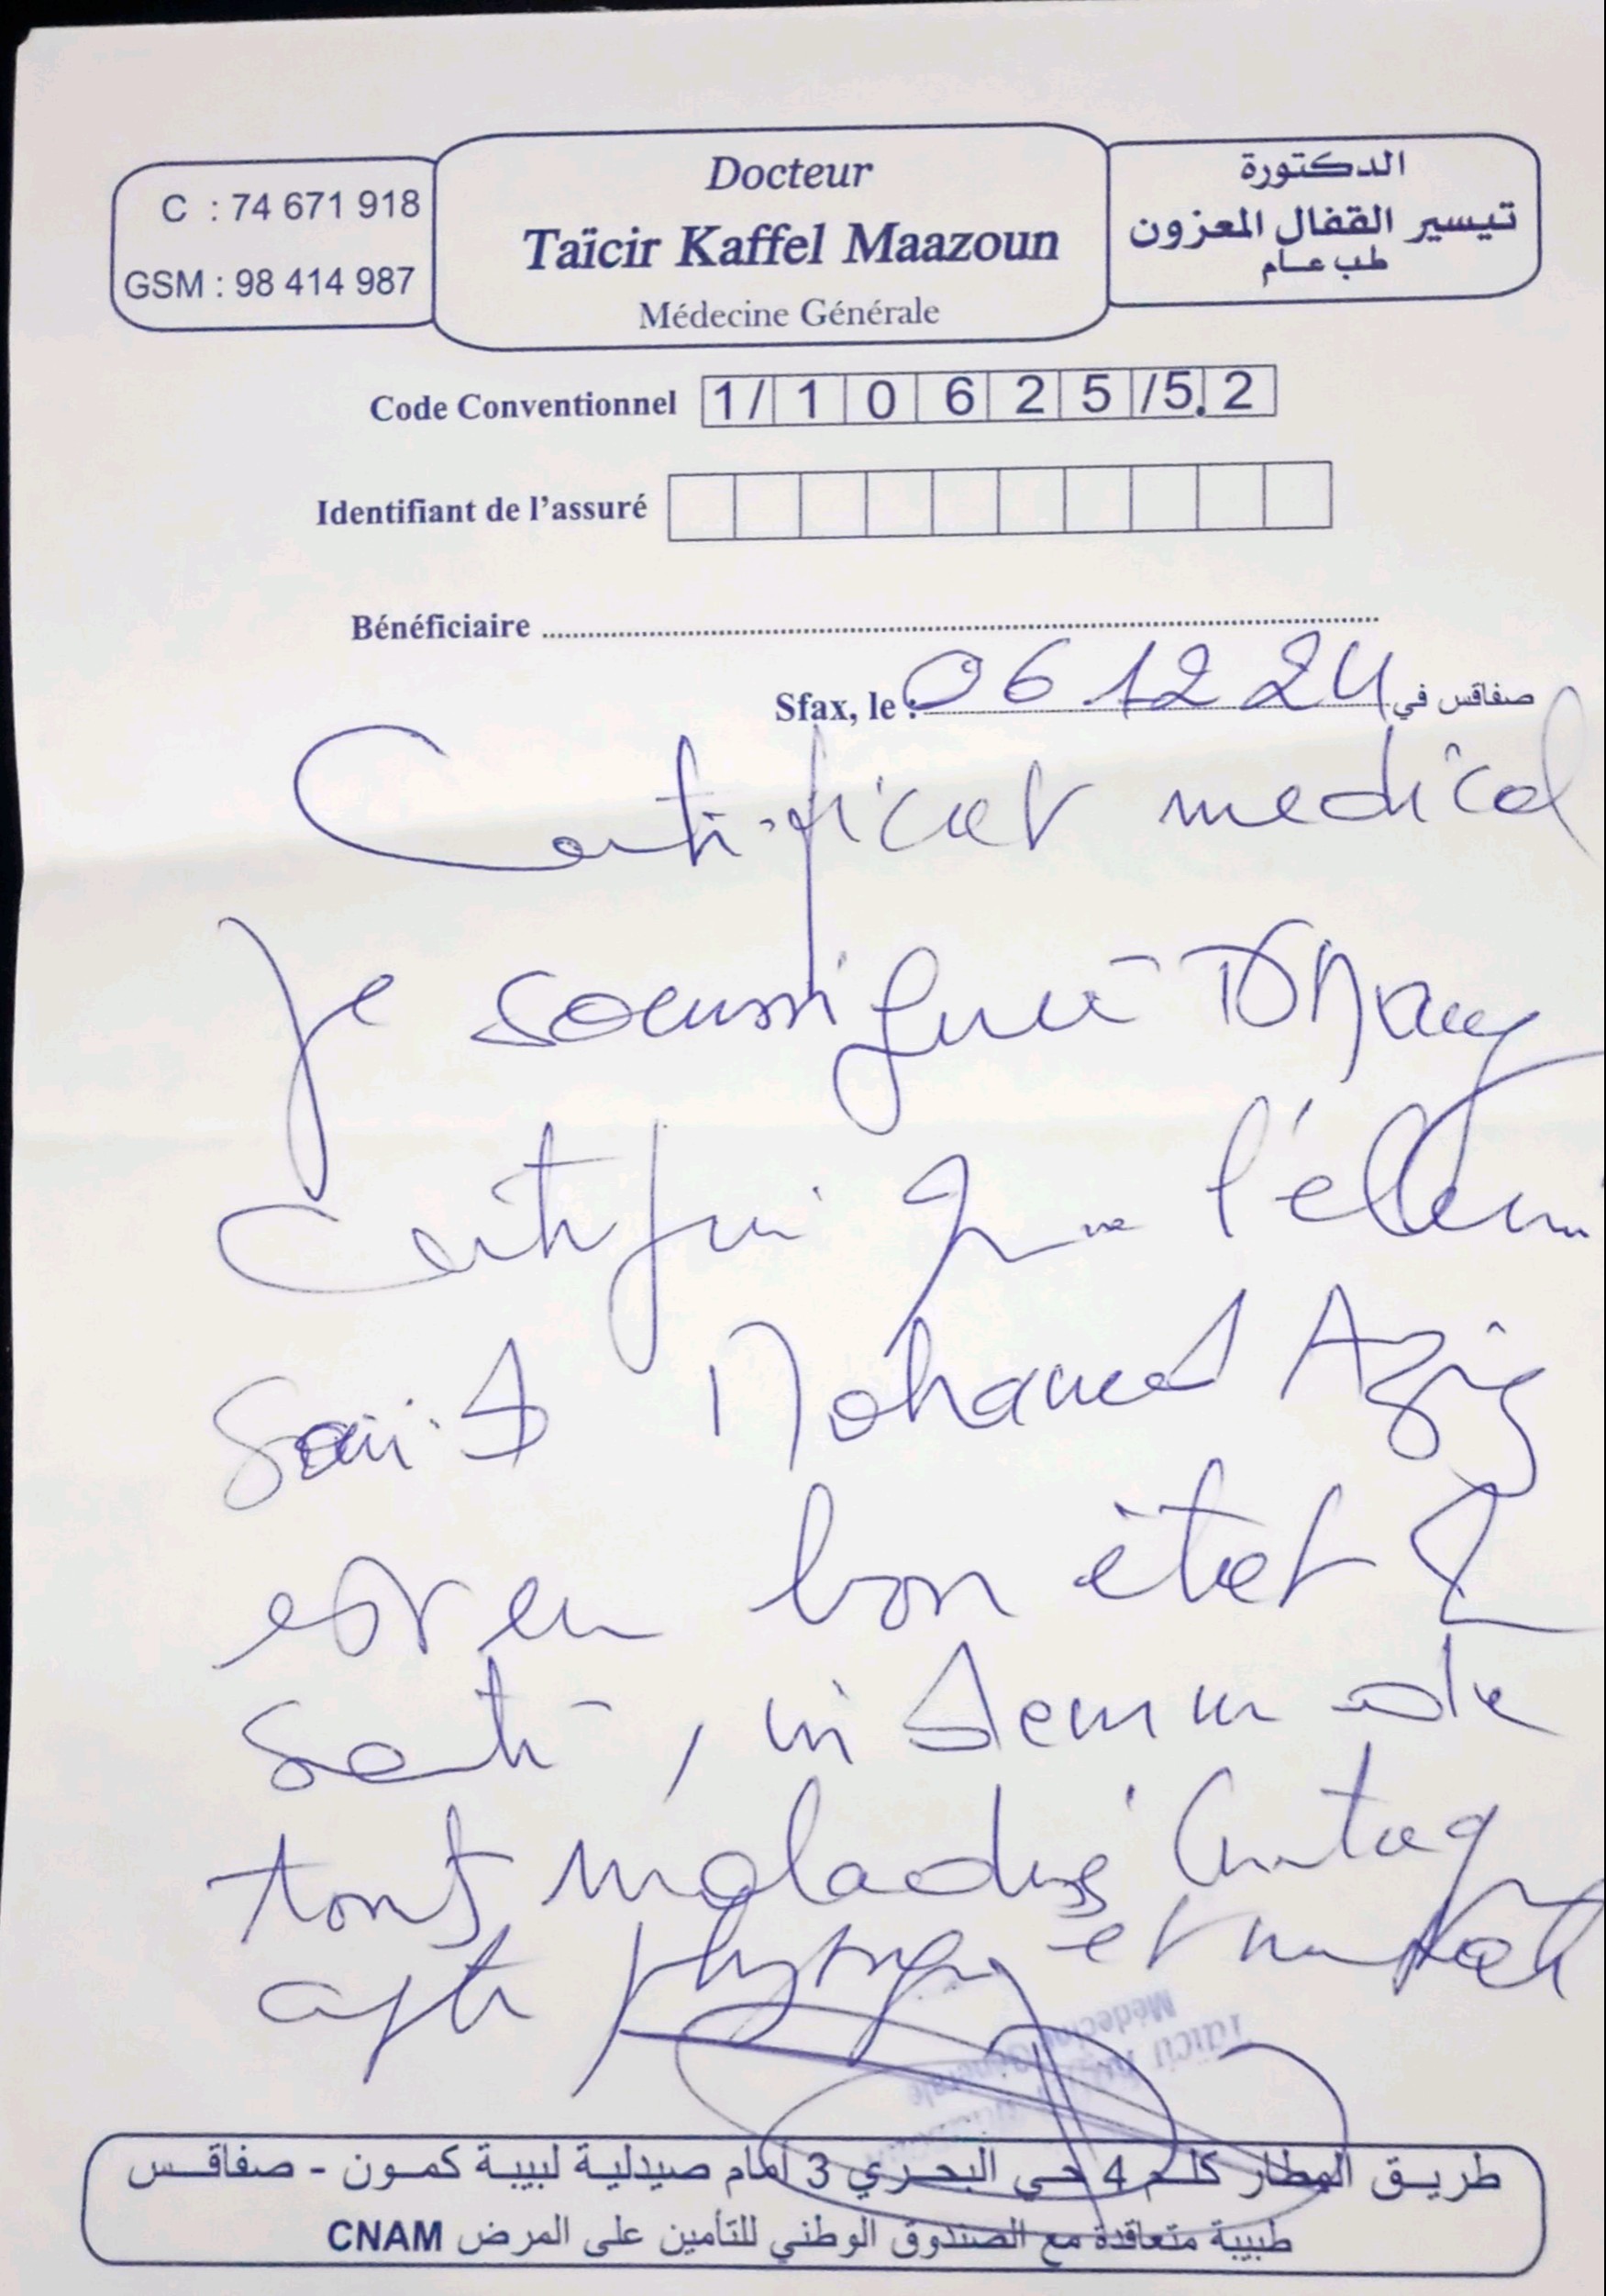 C : 74 671 918
GSM : 98 414 987
Docteur
Taïcir Kaffel Maazoun
Médecine Générale
الدكتورة
تيسير القفال المعزون
طب عام
Code Conventionnel 1/ 1 0 6 2 5 /5. 2
Identifiant de l'assuré
Bénéficiaire
Sfax, le : 06 12 24 صفاقس في
Certificat medical
Je soussigné
certifie que l'élève
Mohamed Aziz
est en bon état de
santé, indemne de
toute maladie contag
apte physiq et
Taïcir
Médecine Générale
طريق المطار كلم 4 حي البحري 3 أمام صيدلية لبيبة كمون - صفاقس
طبيبة متعاقدة مع الصندوق الوطني للتأمين على المرض CNAM